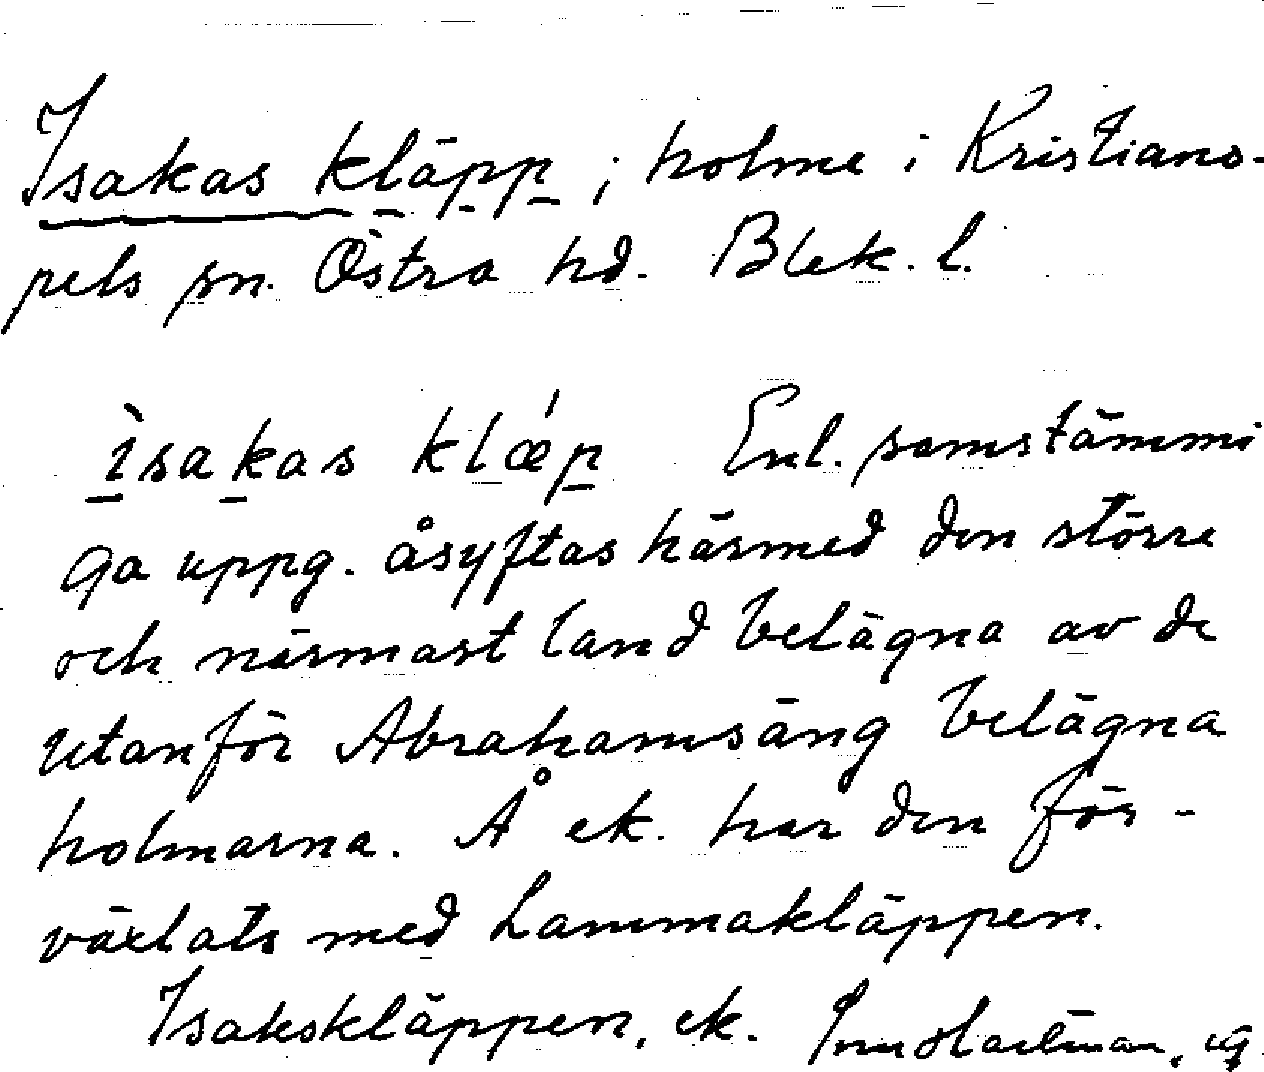 Isakas kläpp ; holme i Kristiano-
pels sn. Östra hd. Blek. l.
ìsakas klǽp Enl. samstämmi
ga uppg. åsyftas härmed den större
och närmast land belägna av de
utanför Abrahamsäng belägna
holmarna. Å ek. har den för-
växlats med Lammakläppen.
Isakskläppen, ek.